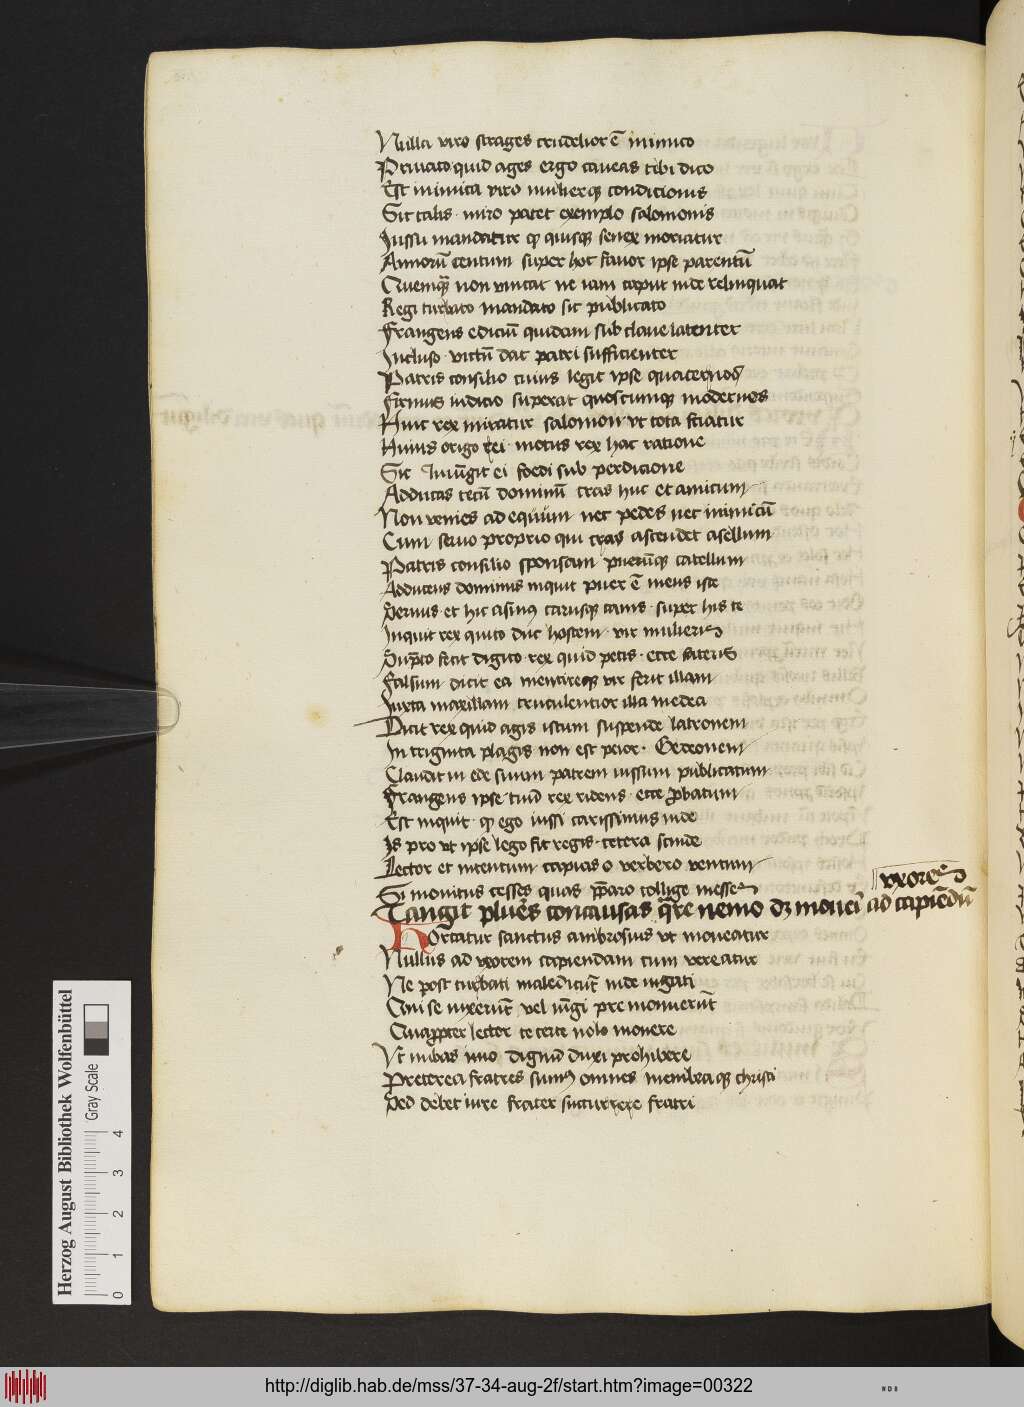 Nulla viro strages crudelior ē inimico
Privato quid ages ergo caveas tibi dico
Est inimica viro mulierque condicionis
Sit talis miro patet exemplo salomonis
Jussu mandatur qꝫ quisque senex moriatur
Annorū centum super hoc favor ipse parentū
Quemquā non vincat ne iam caput inde relinquat
Regi turbato mandato sic publicato
Frangens edictū quidam sub clave latenter
Incluso victū dat patri sufficienter
Patris consilio cuius legit ipse quaternos
Firmus iudicio superat quoscumque modernos
Hunc rex miratur salomon ut tota sciatur
Huius origo rei motus rex hac ratione
Sic Iniūgit ei foedi sub perdicione
Adducas tecū dominū cras huc et amicum
Non venies ad equum nec pedes nec inimicū
Cum servo proprio qui cras ascendet asellum
Patris consilio sponsam puerūque catellum
Adducens dominus inquit puer ē meus iste
Servus et hic asinus carusque canis super his te
Inquit rex quito duc hostem vir mulieris
Sumpto fecit digito rex quid petis ecce fateris
Falsum dicit ea mentireque vir ferit illam
Juxta maxillam truculentior illa medea
Dicit rex quid agis istum suspende latronem
In triginta plagis non est peior Gereonem
Claudit in ede suum patrem iussum publicatum
Frangens ipse tuū rex ridens ecce probatum
Est inquit qꝫ ego iussi carissimus inde
Is pro ut ipse lego fit regis cetera scinde
Lector et intentum capias o verbero ventum
Si monitus cesses quas pparo collige messes
Tangit plures concausas quare nemo dꝫ moneri ad capiēdū
uxores
Hortatur sanctus ambrosius ut moneatur
Nullus ad uxorem capiendam cum vereatur
Ne post turbati maledicūt inde iugati
Qui se iunxerūt vel iūgi premonuerūt
Quapropter lector te certe nolo monere
Ut nubas imo dignū duxi prohibere
Preterea fratres sumus omnes membraque christi
Sed debet iure frater succurrere fratri
Herzog August Bibliothek Wolfenbüttel
Gray Scale
0 1 2 3 4
http://diglib.hab.de/mss/37-34-aug-2f/start.htm?image=00322